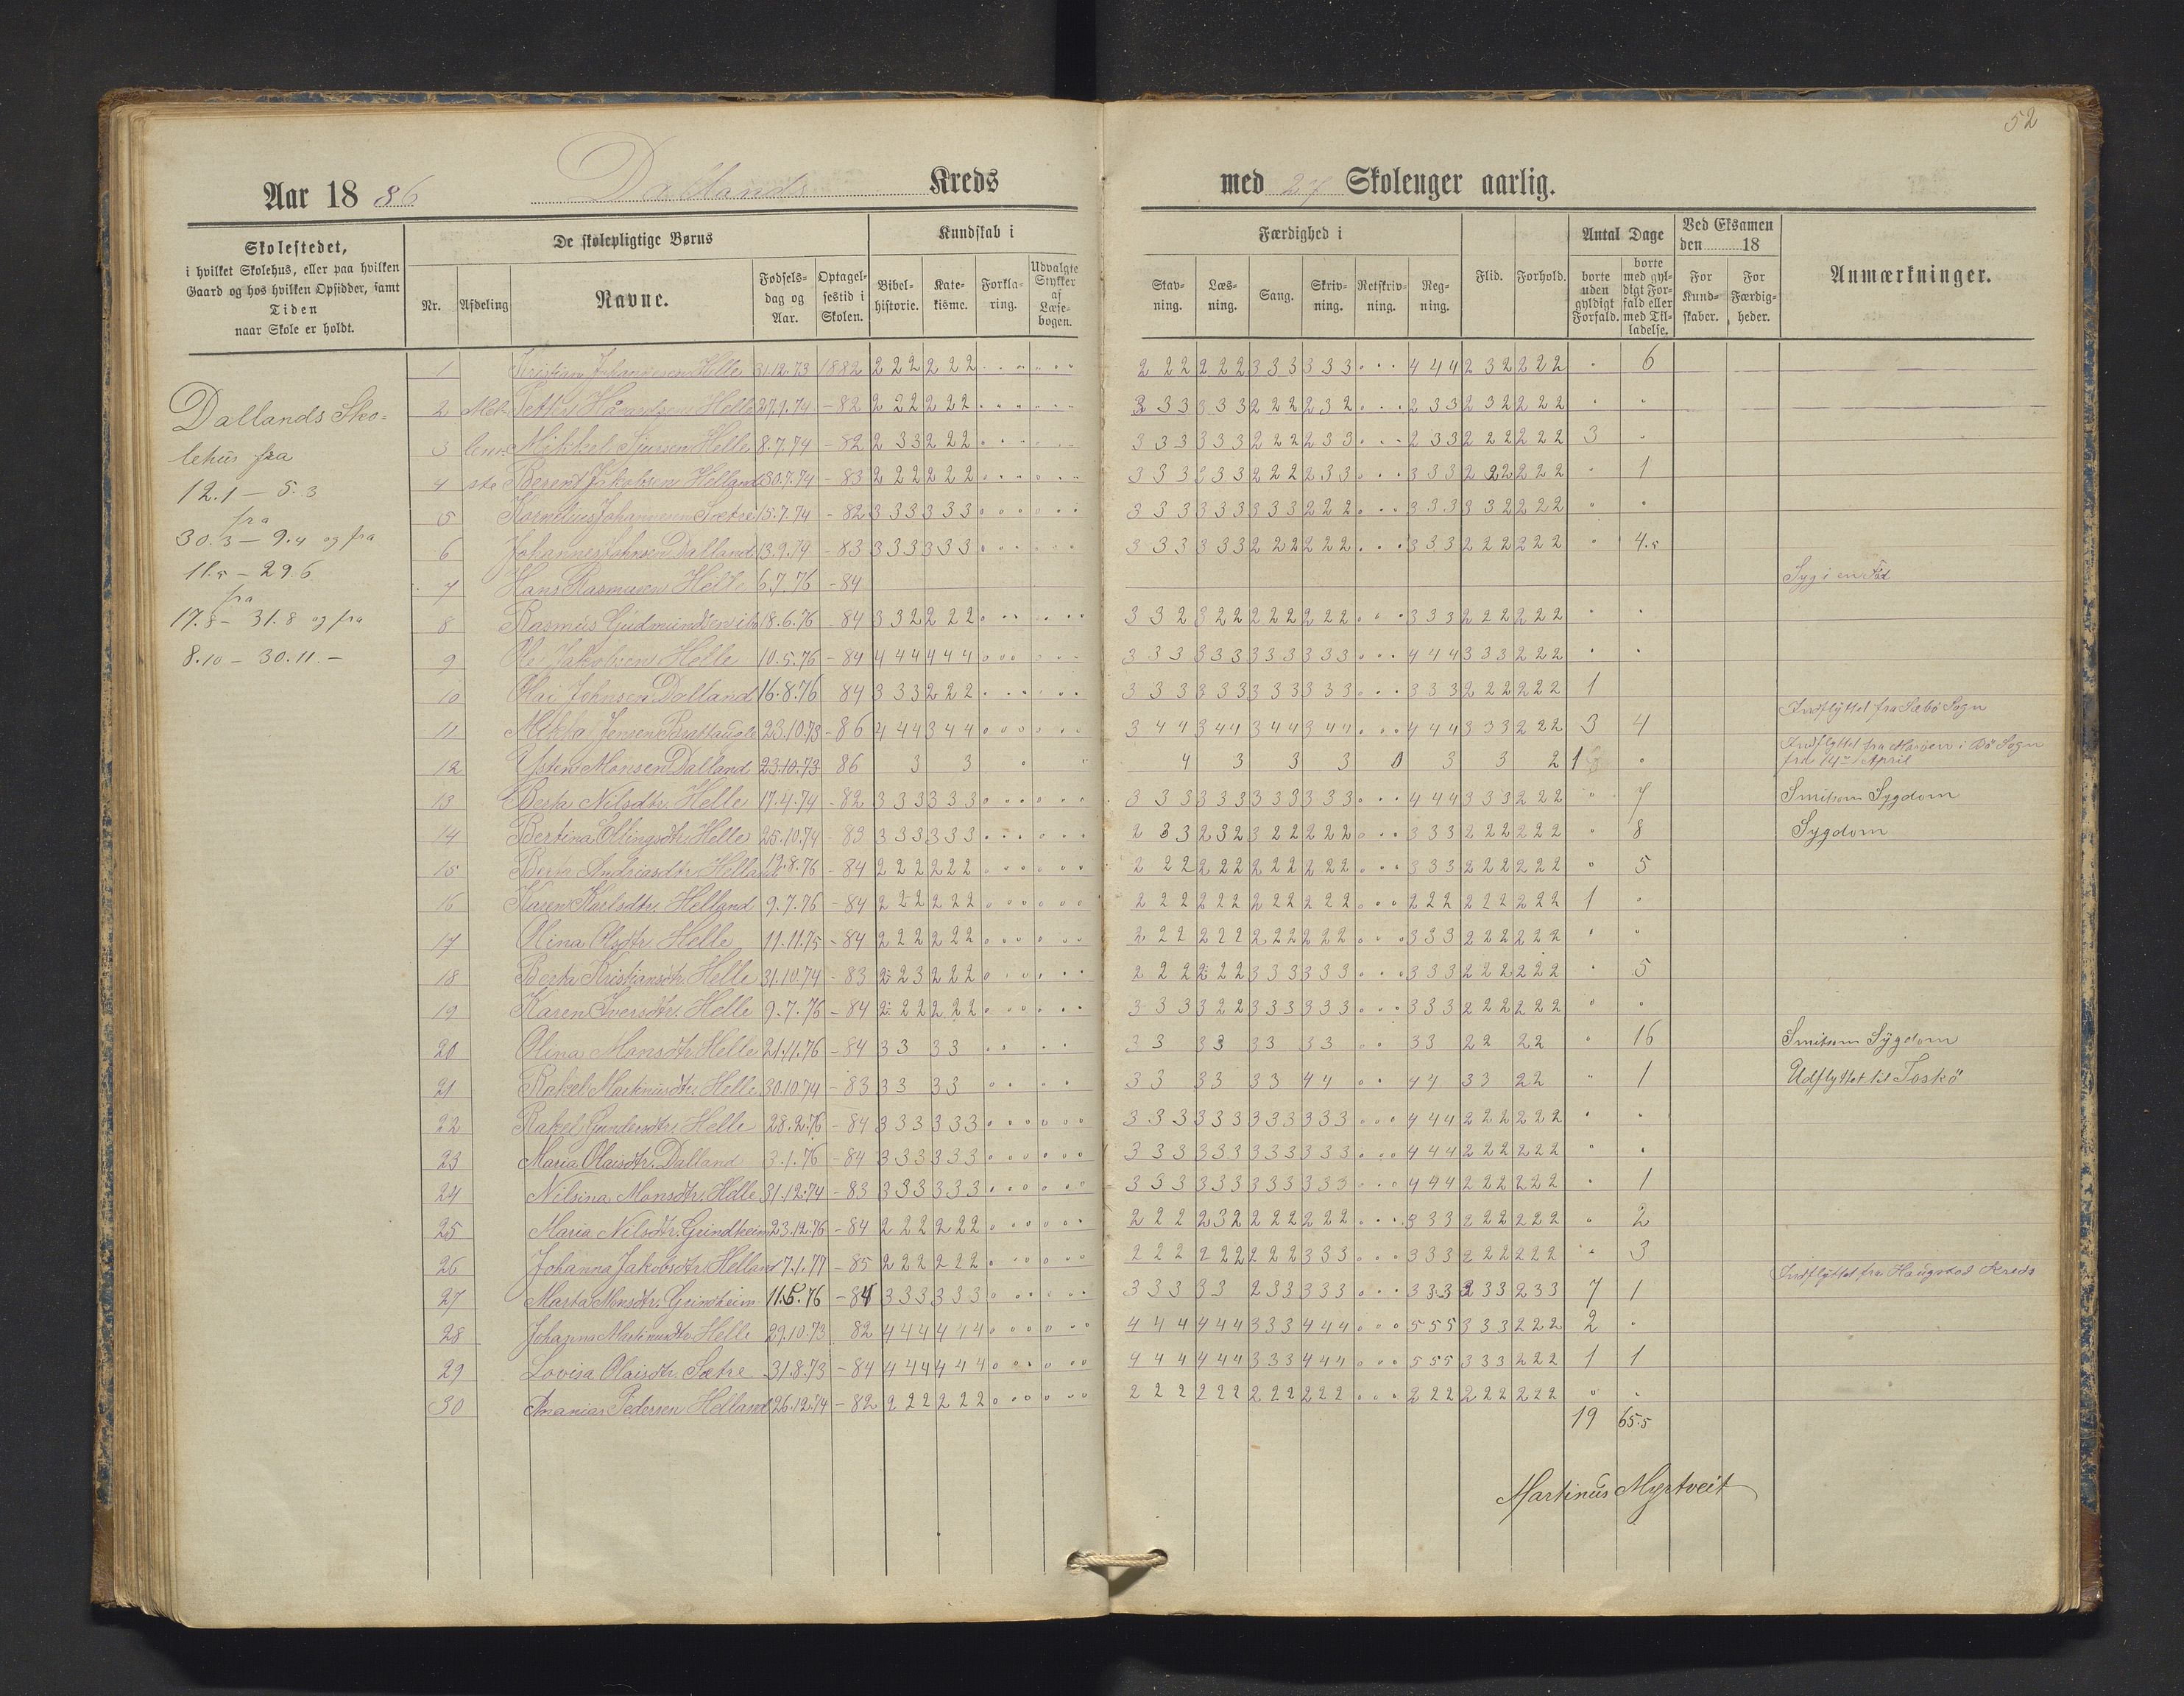 52
Aar 1886 Dallands Kreds med 27 Skoleuger aarlig.
Skolestedet, i hvilket Skolehus, eller paa hvilken Gaard og hos hvilken Opsidder, samt Tiden naar Skole er holdt.
De skolepligtige Børns
Nr. Afdeling Navne. Fødselsdag og Aar. Optagelsestid i Skolen.
Kundskab i
Bibelhistorie. Katekisme. Forklaring. Udvalgte Stykker af Læsebogen.
Færdighed i
Stavning. Læsning. Sang. Skrivning. Retskrivning. Regning.
Flid. Forhold.
Antal Dage
borte uden gyldigt Forfald. borte med gyldigt Forfald eller med Tilladelse.
Ved Eksamen den 18
For Kundskaber. For Færdigheder.
Anmærkninger.
Dallands Sko=
lehus fra
12.1 – 5.3
fra
30.3 – 9.4 og fra
11.5 – 29.6
fra
17.8 – 31.8 og fra
8.10 – 30.11. –
1 Kristian Johannesen Helle 31.12.73 1882 222 222 222 222 333 333 444 232 222 6
2 Mel Petter Håvardsen Helle 27.1.74 – 82 222 222 333 333 222 232 233 232 222
3 lem Mikkel Sjursen Helle 8.7.74 – 82 233 222 333 333 222 233 233 222 222 3
4 ste Berent Jakobsen Helland 30.7.74 – 83 222 222 333 333 222 233 333 222 222 1
5 Kornelius Johannesen Sætre 15.7.74 – 82 333 333 333 333 333 222 333 332 222
6 Johannes Johnsen Dalland 13.9.74 – 83 333 333 333 333 222 222 333 222 222 4.5
7 Hans Rasmusen Helle 6.7.76 – 84 Syg i en Fod
8 Rasmus Gudmundsen ib 18.6.76 – 84 332 222 332 322 222 222 333 222 222
9 Ole Jakobsen Helle 10.5.76 – 84 444 444 333 333 333 333 444 333 222
10 Olai Johnsen Dalland 16.8.76 84 333 222 333 333 333 333 333 222 222 1
11 Mikkal Jensen Brattaule 23.10.73 – 86 444 344 344 344 344 344 444 333 222 3 4 Indflyttet fra Sæbö Sogn
12 Østen Monsen Dalland 23.10.73 86 3 3 4 3 3 3 0 3 3 2 1 Indflyttet fra Marøen i Bö Sogn
fra 14de April
13 Berta Nilsdtr. Helle 17.4.74 – 82 333 333 333 333 333 333 444 333 222 7 Smitsom Sygdom
14 Bertina Ellingsdtr. Helle 25.10.74 – 83 333 333 233 232 322 222 333 222 222 8 Sygdom
15 Berta Andreasdtr. Helland 12.8.76 – 84 222 222 222 222 222 222 333 222 222 5
16 Karen Karlsdtr. Helland 9.7.76 – 84 222 222 222 222 222 222 222 222 222 1
17 Olina Olsdtr Helle 11.11.75 – 84 222 222 222 222 222 222 333 222 222
18 Berta Kristiansdtr. Helle 31.10.74 – 83 223 222 222 222 333 333 333 222 222 5
19 Karen Iversdtr. Helle 9.7.76 – 84 222 222 333 322 333 333 333 222 222
20 Olina Monsdtr. Helle 21.11.76 – 84 33 33 33 33 33 33 33 22 22 16 Smitsom Sygdom
21 Rakel Martinusdtr. Helle 30.10.74 – 83 33 33 33 33 33 44 44 33 22 1 Udflyttet til Toskö
22 Rakel Gundersdtr. Helle 28.2.76 – 84 333 333 333 333 333 333 444 222 222
23 Maria Olaisdtr. Dalland 3.1.76 – 84 333 333 333 333 333 333 444 222 222
24 Nilsina Monsdtr. Helle 31.12.74 – 83 333 333 333 333 333 333 444 222 222 1
25 Maria Nilsdtr. Grindheim 23.12.76 – 84 222 222 222 232 222 222 333 222 222 2
26 Johanna Jakobsdtr. Helland 7.1.77 – 85 222 222 222 222 222 333 333 222 222 3
27 Marta Monsdtr. Grindheim 11.5.76 – 84 333 333 333 33 233 333 333 233 233 7 1 Indflyttet fra Haugstad Kreds
28 Johanna Martinusdtr. Helle 29.10.73 82 444 444 444 444 333 444 555 333 222 2
29 Lovisa Olaisdtr. Sætre 31.8.73 – 84 444 444 444 444 333 444 555 333 222 1 1
30 Ananias Pedersen Helland 26.12.74 – 82 222 222 222 222 222 222 222 222 222
19 65.5
Martinus Myrtveit